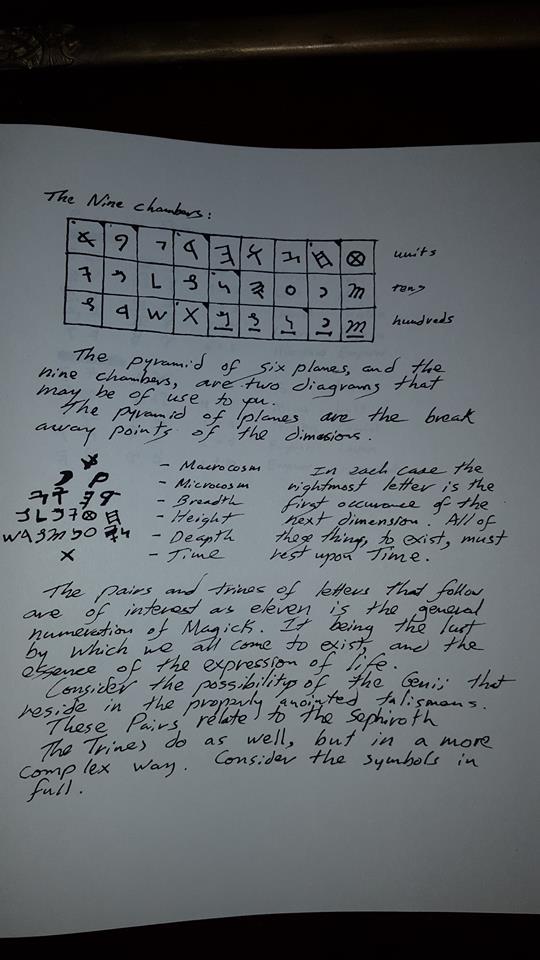 The Nine chambers:
units
tens
hundreds
The pyramid of six planes, and the
nine chambers, are two diagrams that
may be of use to you.
The pyramid of planes are the break
away points of the dimesions.
– Macrocosm
– Microcosm
– Breadth
– Height
– Deapth
– Time
In each case the
rightmost letter is the
first occurance of the
next dimension. All of
these things, to exist, must
rest upon Time.
The pairs and trines of letters that follow
are of interest as eleven is the general
numeration of Magick. It being the
by which we all come to exist, and the
essence of the expression of life.
Consider the possibilitys of the Genii that
reside in the properly anointed talismans.
These Pairs relate to the Sephiroth
The Trines do as well, but in a more
complex way. Consider the symbols in
full.